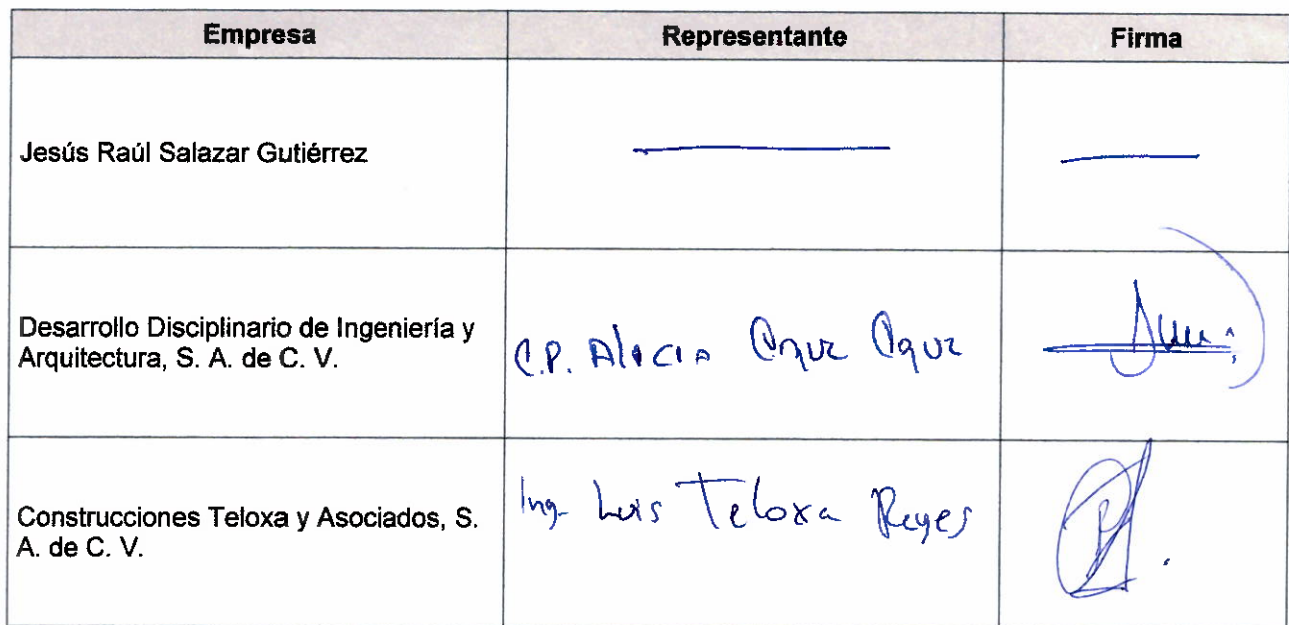 Empresa Representante Firma
Jesús Raúl Salazar Gutiérrez
Desarrollo Disciplinario de Ingeniería y
Arquitectura, S. A. de C. V.
C.P. Alicia Cruz Cruz
Construcciones Teloxa y Asociados, S.
A. de C. V.
Ing. Luis Teloxa Reyes